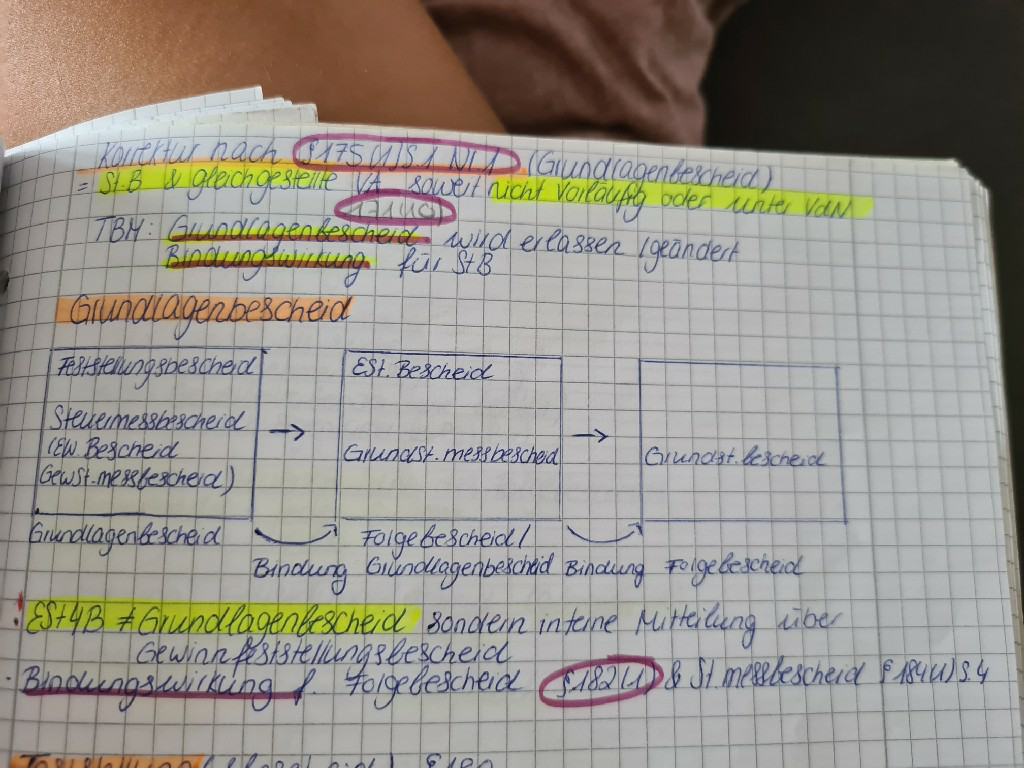 Korrektur nach §175 (1) S.1 Nr.1 (Grundlagenbescheid)
= St.B & gleichgestellte VA soweit nicht vorläufig oder unter VdN
TBM: Grundlagenbescheid wird erlassen /geändert
Bindungswirkung für StB
Grundlagenbescheid
Feststellungsbescheid
Steuermessbescheid
(EW Bescheid
GewSt.messbescheid)
Grundlagenbescheid
→
ESt. Bescheid
Grundst.messbescheid
Folgebescheid/
Grundlagenbescheid
→
Grundst.bescheid
Folgebescheid
Bindung
Bindung
! ESt4B ≠ Grundlagenbescheid sondern interne Mitteilung über
Gewinnfeststellungsbescheid
· Bindungswirkung f. Folgebescheid §182(1) & St.messbescheid §184(1)S.4